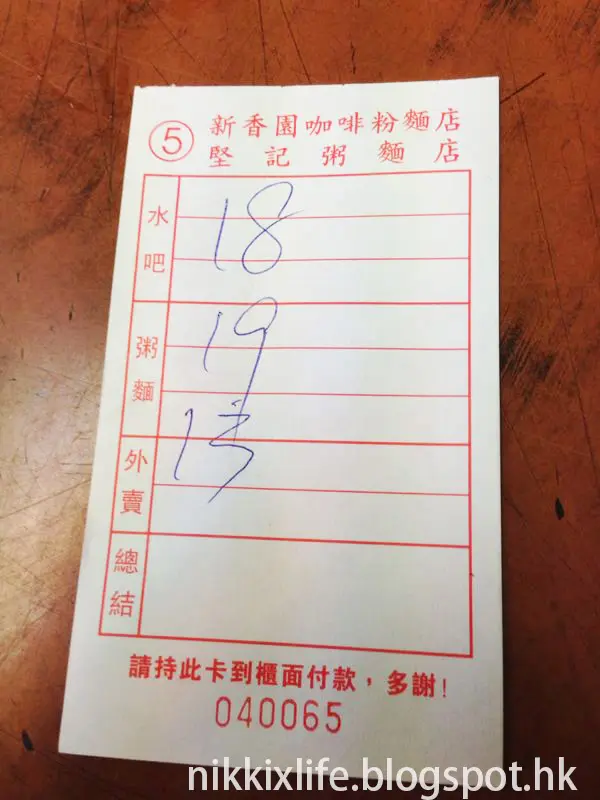 ⑤
新香園咖啡粉麵店
堅記粥麵店
水吧
18
粥麵
19
外賣
總結
請持此卡到櫃面付款，多謝!
040065
nikkixlife.blogspot.hk